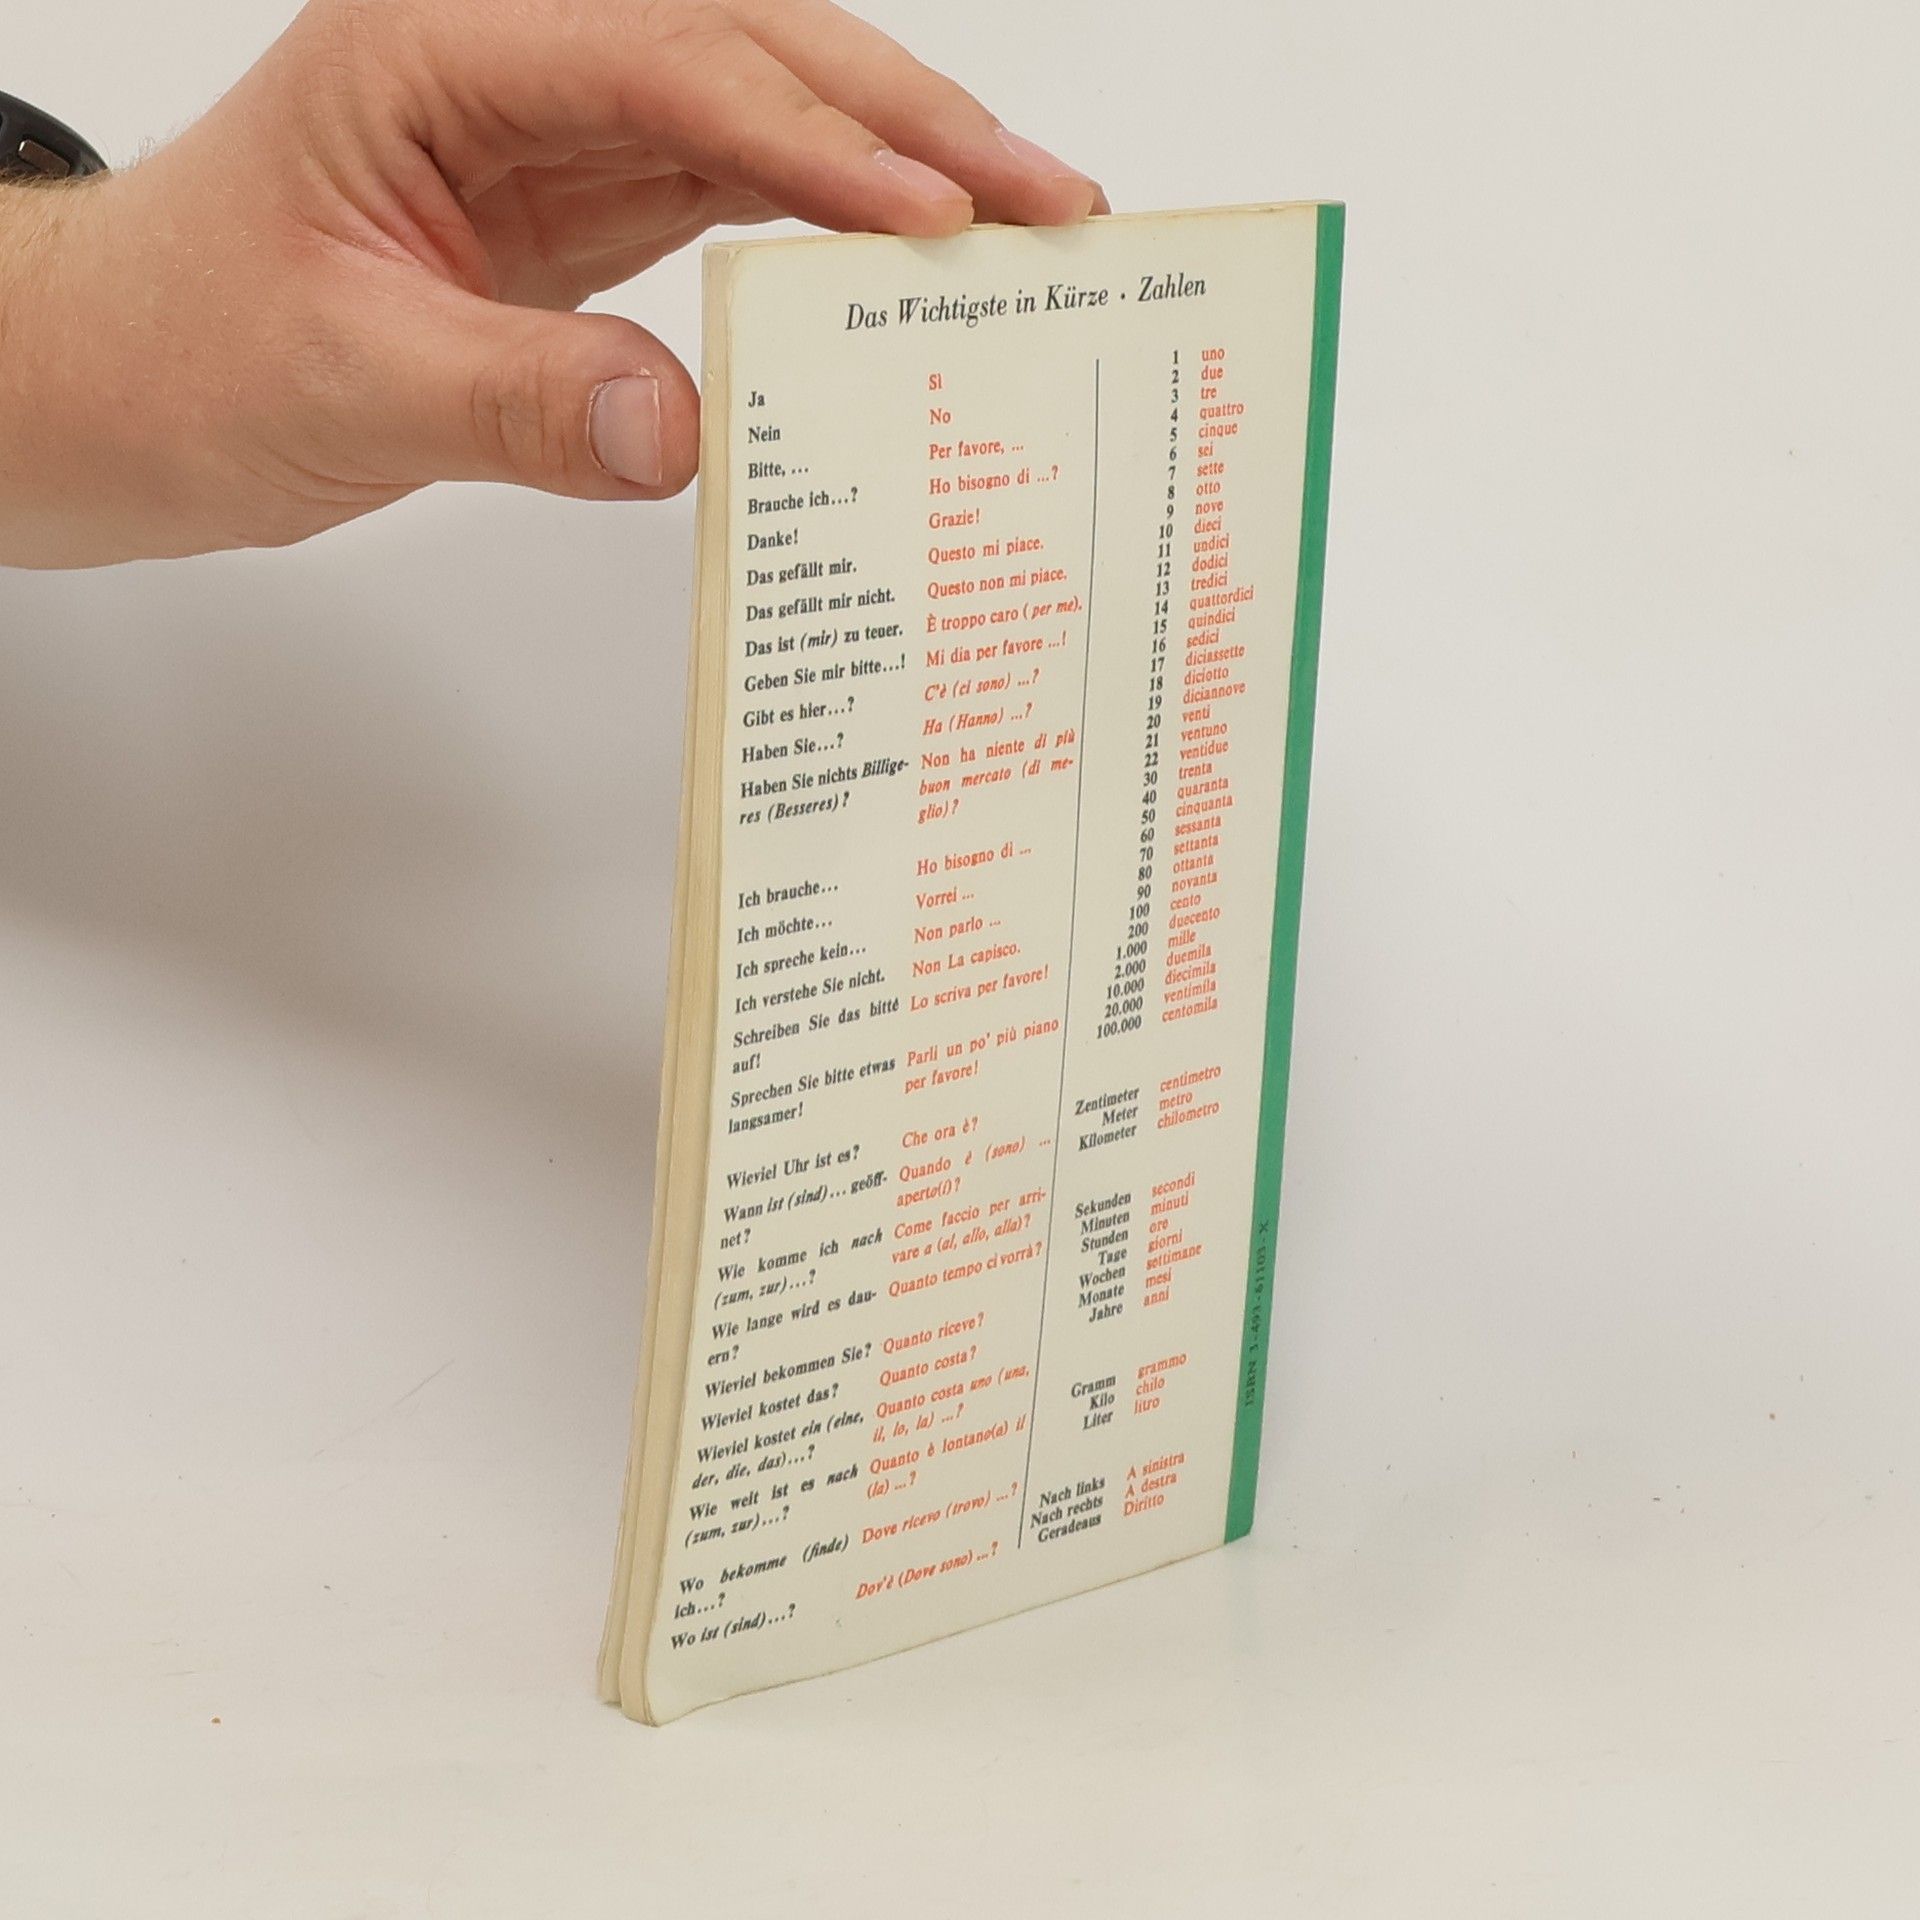 Das Wichtigste in Kürze · Zahlen
Ja Sì
Nein No
Bitte, ... Per favore, ...
Brauche ich...? Ho bisogno di ...?
Danke! Grazie!
Das gefällt mir. Questo mi piace.
Das gefällt mir nicht. Questo non mi piace.
Das ist (mir) zu teuer. È troppo caro (per me).
Geben Sie mir bitte...! Mi dia per favore ...!
Gibt es hier...? C'è (ci sono) ...?
Haben Sie...? Ha (Hanno) ...?
Haben Sie nichts Billige- Non ha niente di più
res (Besseres)? buon mercato (di me-
glio)?
Ich brauche... Ho bisogno di ...
Ich möchte... Vorrei ...
Ich spreche kein... Non parlo ...
Ich verstehe Sie nicht. Non La capisco.
Schreiben Sie das bitte Lo scriva per favore!
auf!
Sprechen Sie bitte etwas Parli un po' più piano
langsamer! per favore!
Wieviel Uhr ist es? Che ora è?
Wann ist (sind)... geöff- Quando è (sono) ...
net? aperto(i)?
Wie komme ich nach Come faccio per arri-
(zum, zur)...? vare a (al, allo, alla)?
Wie lange wird es dau- Quanto tempo ci vorrà?
ern?
Wieviel bekommen Sie? Quanto riceve?
Wieviel kostet das? Quanto costa?
Wieviel kostet ein (eine, Quanto costa uno (una,
der, die, das)...? il, lo, la) ...?
Wie weit ist es nach Quanto è lontano(a) il
(zum, zur)...? (la) ...?
Wo bekomme (finde) Dove ricevo (trovo) ...?
ich...?
Wo ist (sind)...? Dov'è (Dove sono) ...?
1 uno
2 due
3 tre
4 quattro
5 cinque
6 sei
7 sette
8 otto
9 nove
10 dieci
11 undici
12 dodici
13 tredici
14 quattordici
15 quindici
16 sedici
17 diciassette
18 diciotto
19 diciannove
20 venti
21 ventuno
22 ventidue
30 trenta
40 quaranta
50 cinquanta
60 sessanta
70 settanta
80 ottanta
90 novanta
100 cento
200 duecento
1.000 mille
2.000 duemila
10.000 diecimila
20.000 ventimila
100.000 centomila
Zentimeter centimetro
Meter metro
Kilometer chilometro
Sekunden secondi
Minuten minuti
Stunden ore
Tage giorni
Wochen settimane
Monate mesi
Jahre anni
Gramm grammo
Kilo chilo
Liter litro
Nach links A sinistra
Nach rechts A destra
Geradeaus Diritto
ISBN 3-493-61103-X